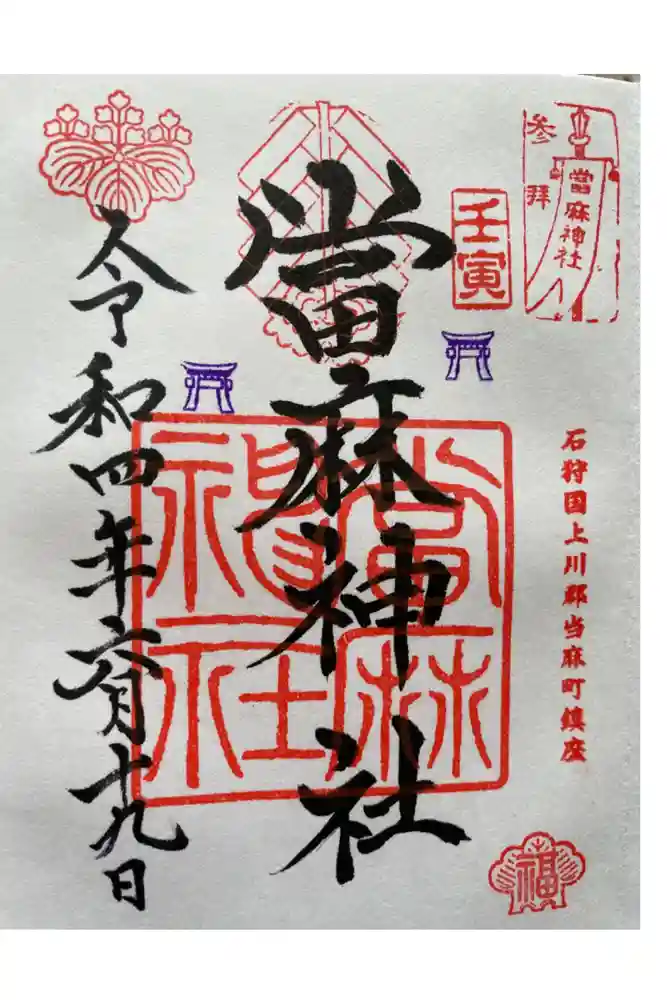 参拝
當麻神社
壬寅
石狩国上川郡当麻町鎮座
當麻神社
當麻神社
令和四年六月十九日
福